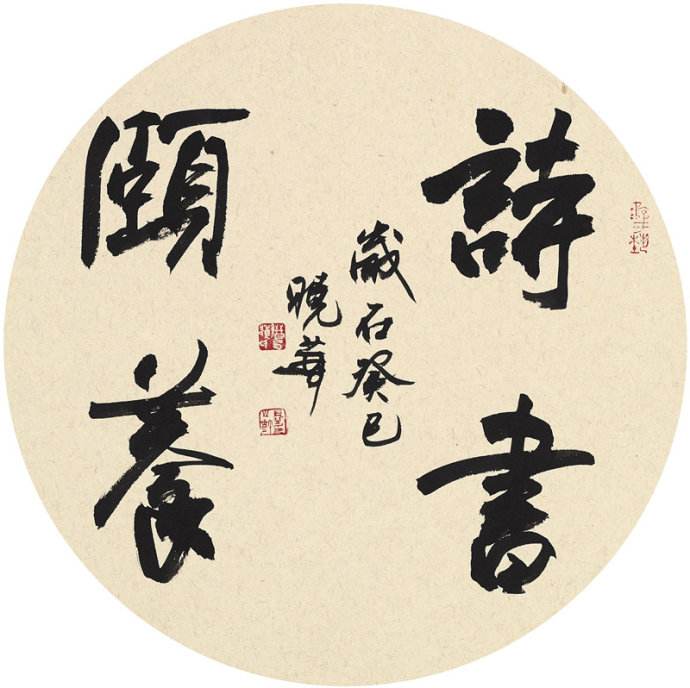 詩書
頤養
歲在癸巳
曉華